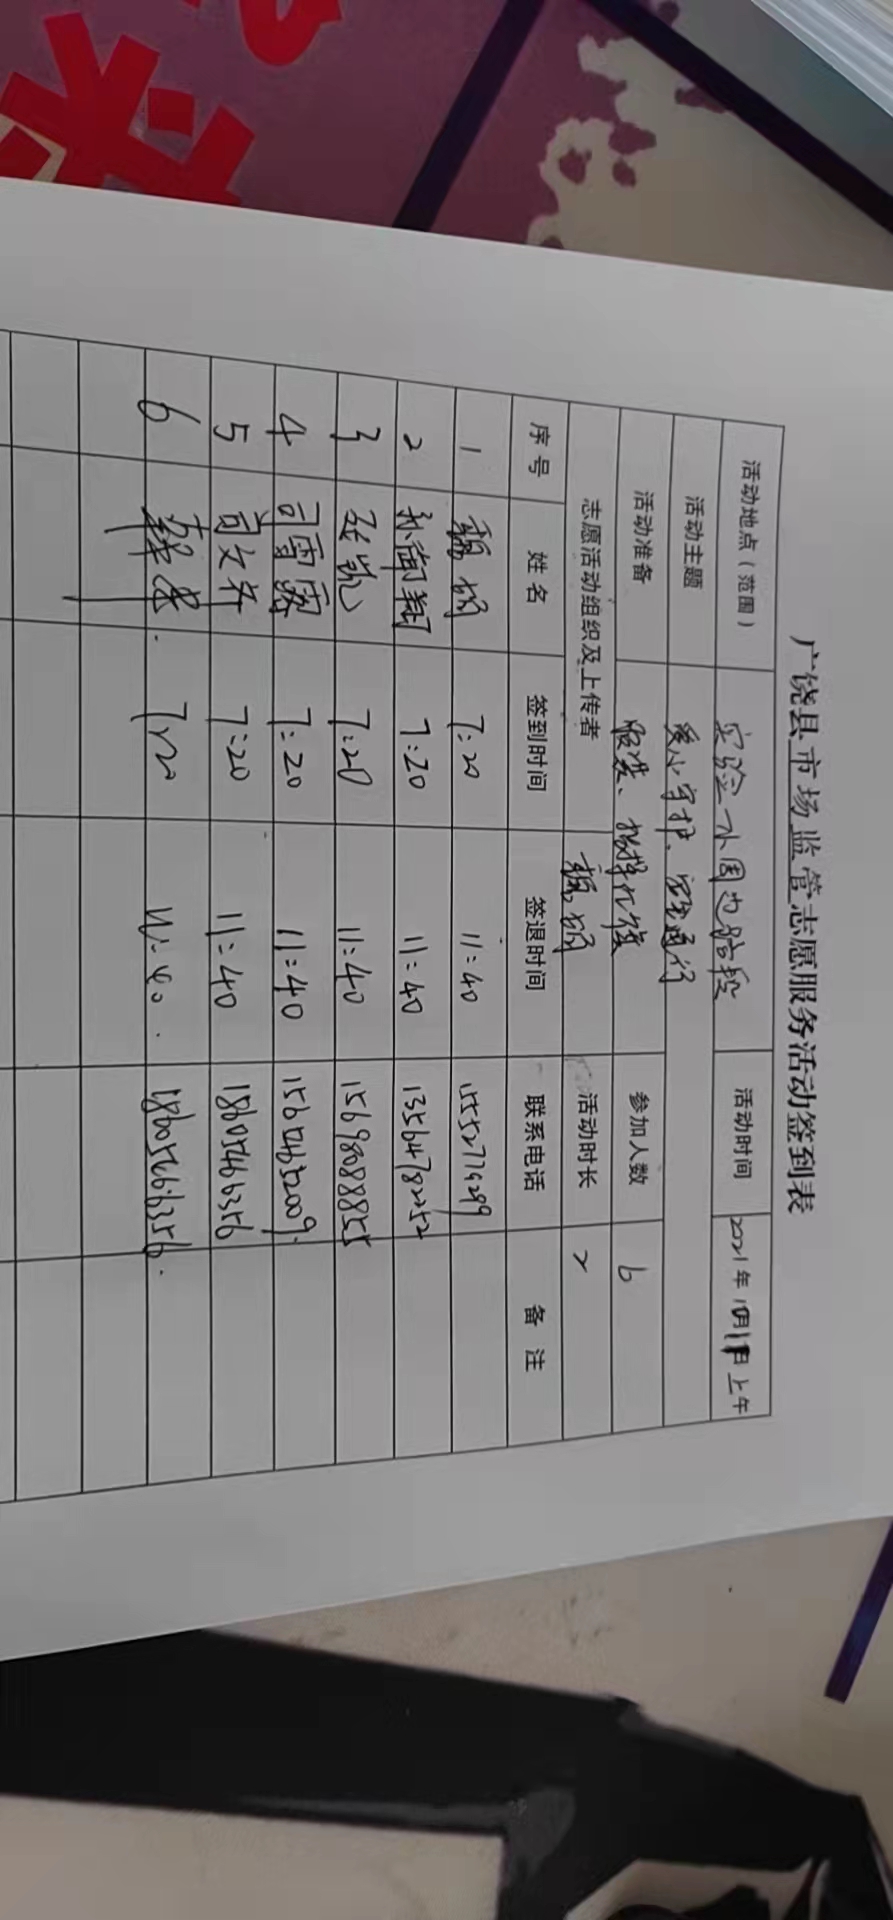 广饶县市场监管志愿服务活动签到表
活动地点（范围） 实验小周边路段 活动时间 2021年10月11日上午
活动主题 爱心守护、安全通行
活动准备 服装、指挥 参加人数 6
志愿活动组织及上传者 活动时长 2
序号 姓名 签到时间 签退时间 联系电话 备注
1 7:20 11:40
2 7:20 11:40 13564782252
3 张凯 7:20 11:40 15698088855
4 司雷霞 7:20 11:40 15654632009
5 司文乔 7:20 11:40 18605466356
6 7:20 11:40